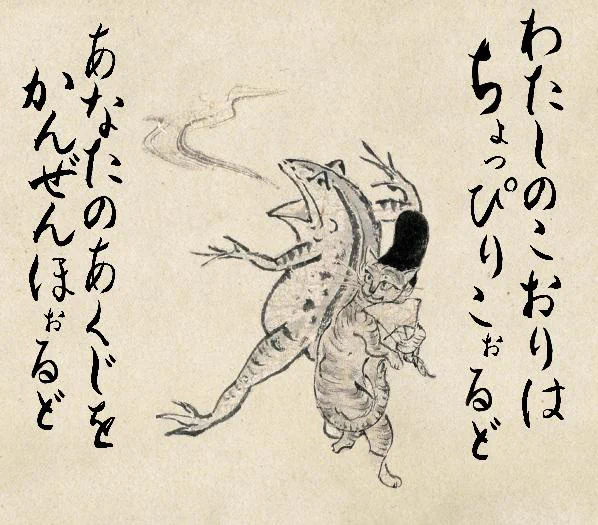 わたしのこおりは
ちょっぴりこぉるど
あなたのあくじを
かんぜんほぉるど